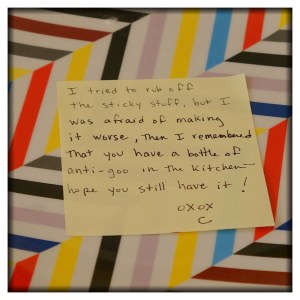 I tried to rub off
the sticky stuff, but I
was afraid of making
it worse, Then I remembered
That you have a bottle of
anti-goo in The kitchen—
hope you still have it!
oxox
C